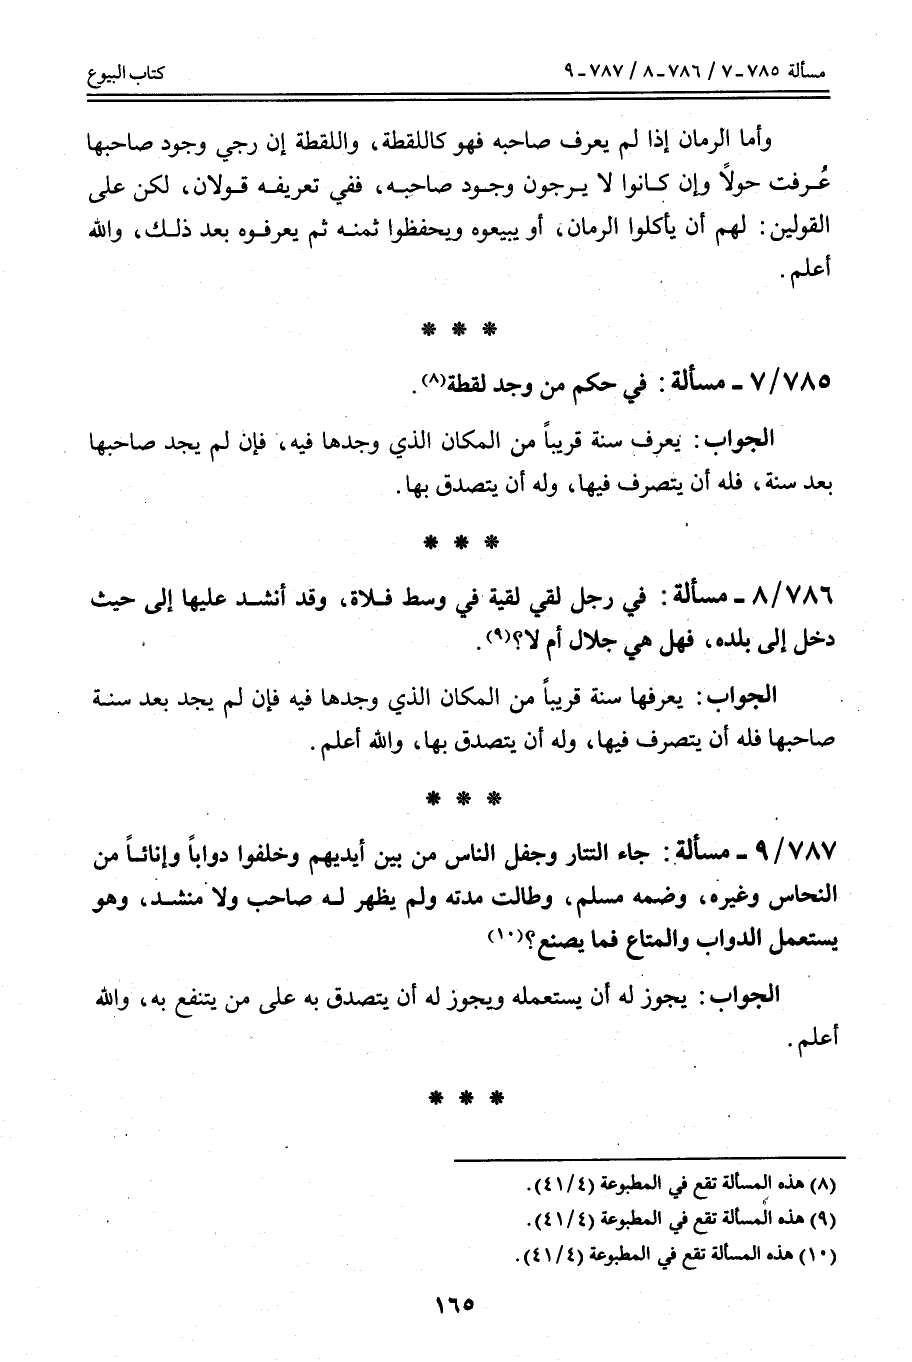 مسألة ٧٨٥-٧ / ٧٨٦-٨ / ٧٨٧-٩
كتاب البيوع
وأما الرمان إذا لم يعرف صاحبه فهو كاللقطة، واللقطة إن رجي وجود صاحبها
عُرفت حولاً وإن كانوا لا يرجون وجود صاحبه، ففي تعريفه قولان، لكن على
القولين: لهم أن يأكلوا الرمان، أو يبيعوه ويحفظوا ثمنه ثم يعرفوه بعد ذلك، والله
أعلم.
* * *
٧/٧٨٥ - مسألة: في حكم من وجد لقطة(٨).
الجواب: يعرف سنة قريباً من المكان الذي وجدها فيه، فإن لم يجد صاحبها
بعد سنة، فله أن يتصرف فيها، وله أن يتصدق بها.
* * *
٨/٧٨٦ - مسألة: في رجل لقي لقية في وسط فلاة، وقد أنشد عليها إلى حيث
دخل إلى بلده، فهل هي جلال أم لا؟(٩).
الجواب: يعرفها سنة قريباً من المكان الذي وجدها فيه فإن لم يجد بعد سنة
صاحبها فله أن يتصرف فيها، وله أن يتصدق بها، والله أعلم.
* * *
٩/٧٨٧ - مسألة: جاء التتار وجفل الناس من بين أيديهم وخلفوا دواباً وإناثاً من
النحاس وغيره، وضمه مسلم، وطالت مدته ولم يظهر له صاحب ولا منشد، وهو
يستعمل الدواب والمتاع فما يصنع؟(١٠)
الجواب: يجوز له أن يستعمله ويجوز له أن يتصدق به على من يتنفع به، والله
أعلم.
* * *
(٨) هذه المسألة تقع في المطبوعة (٤١/٤).
(٩) هذه المسألة تقع في المطبوعة (٤١/٤).
(١٠) هذه المسألة تقع في المطبوعة (٤١/٤).
١٦٥